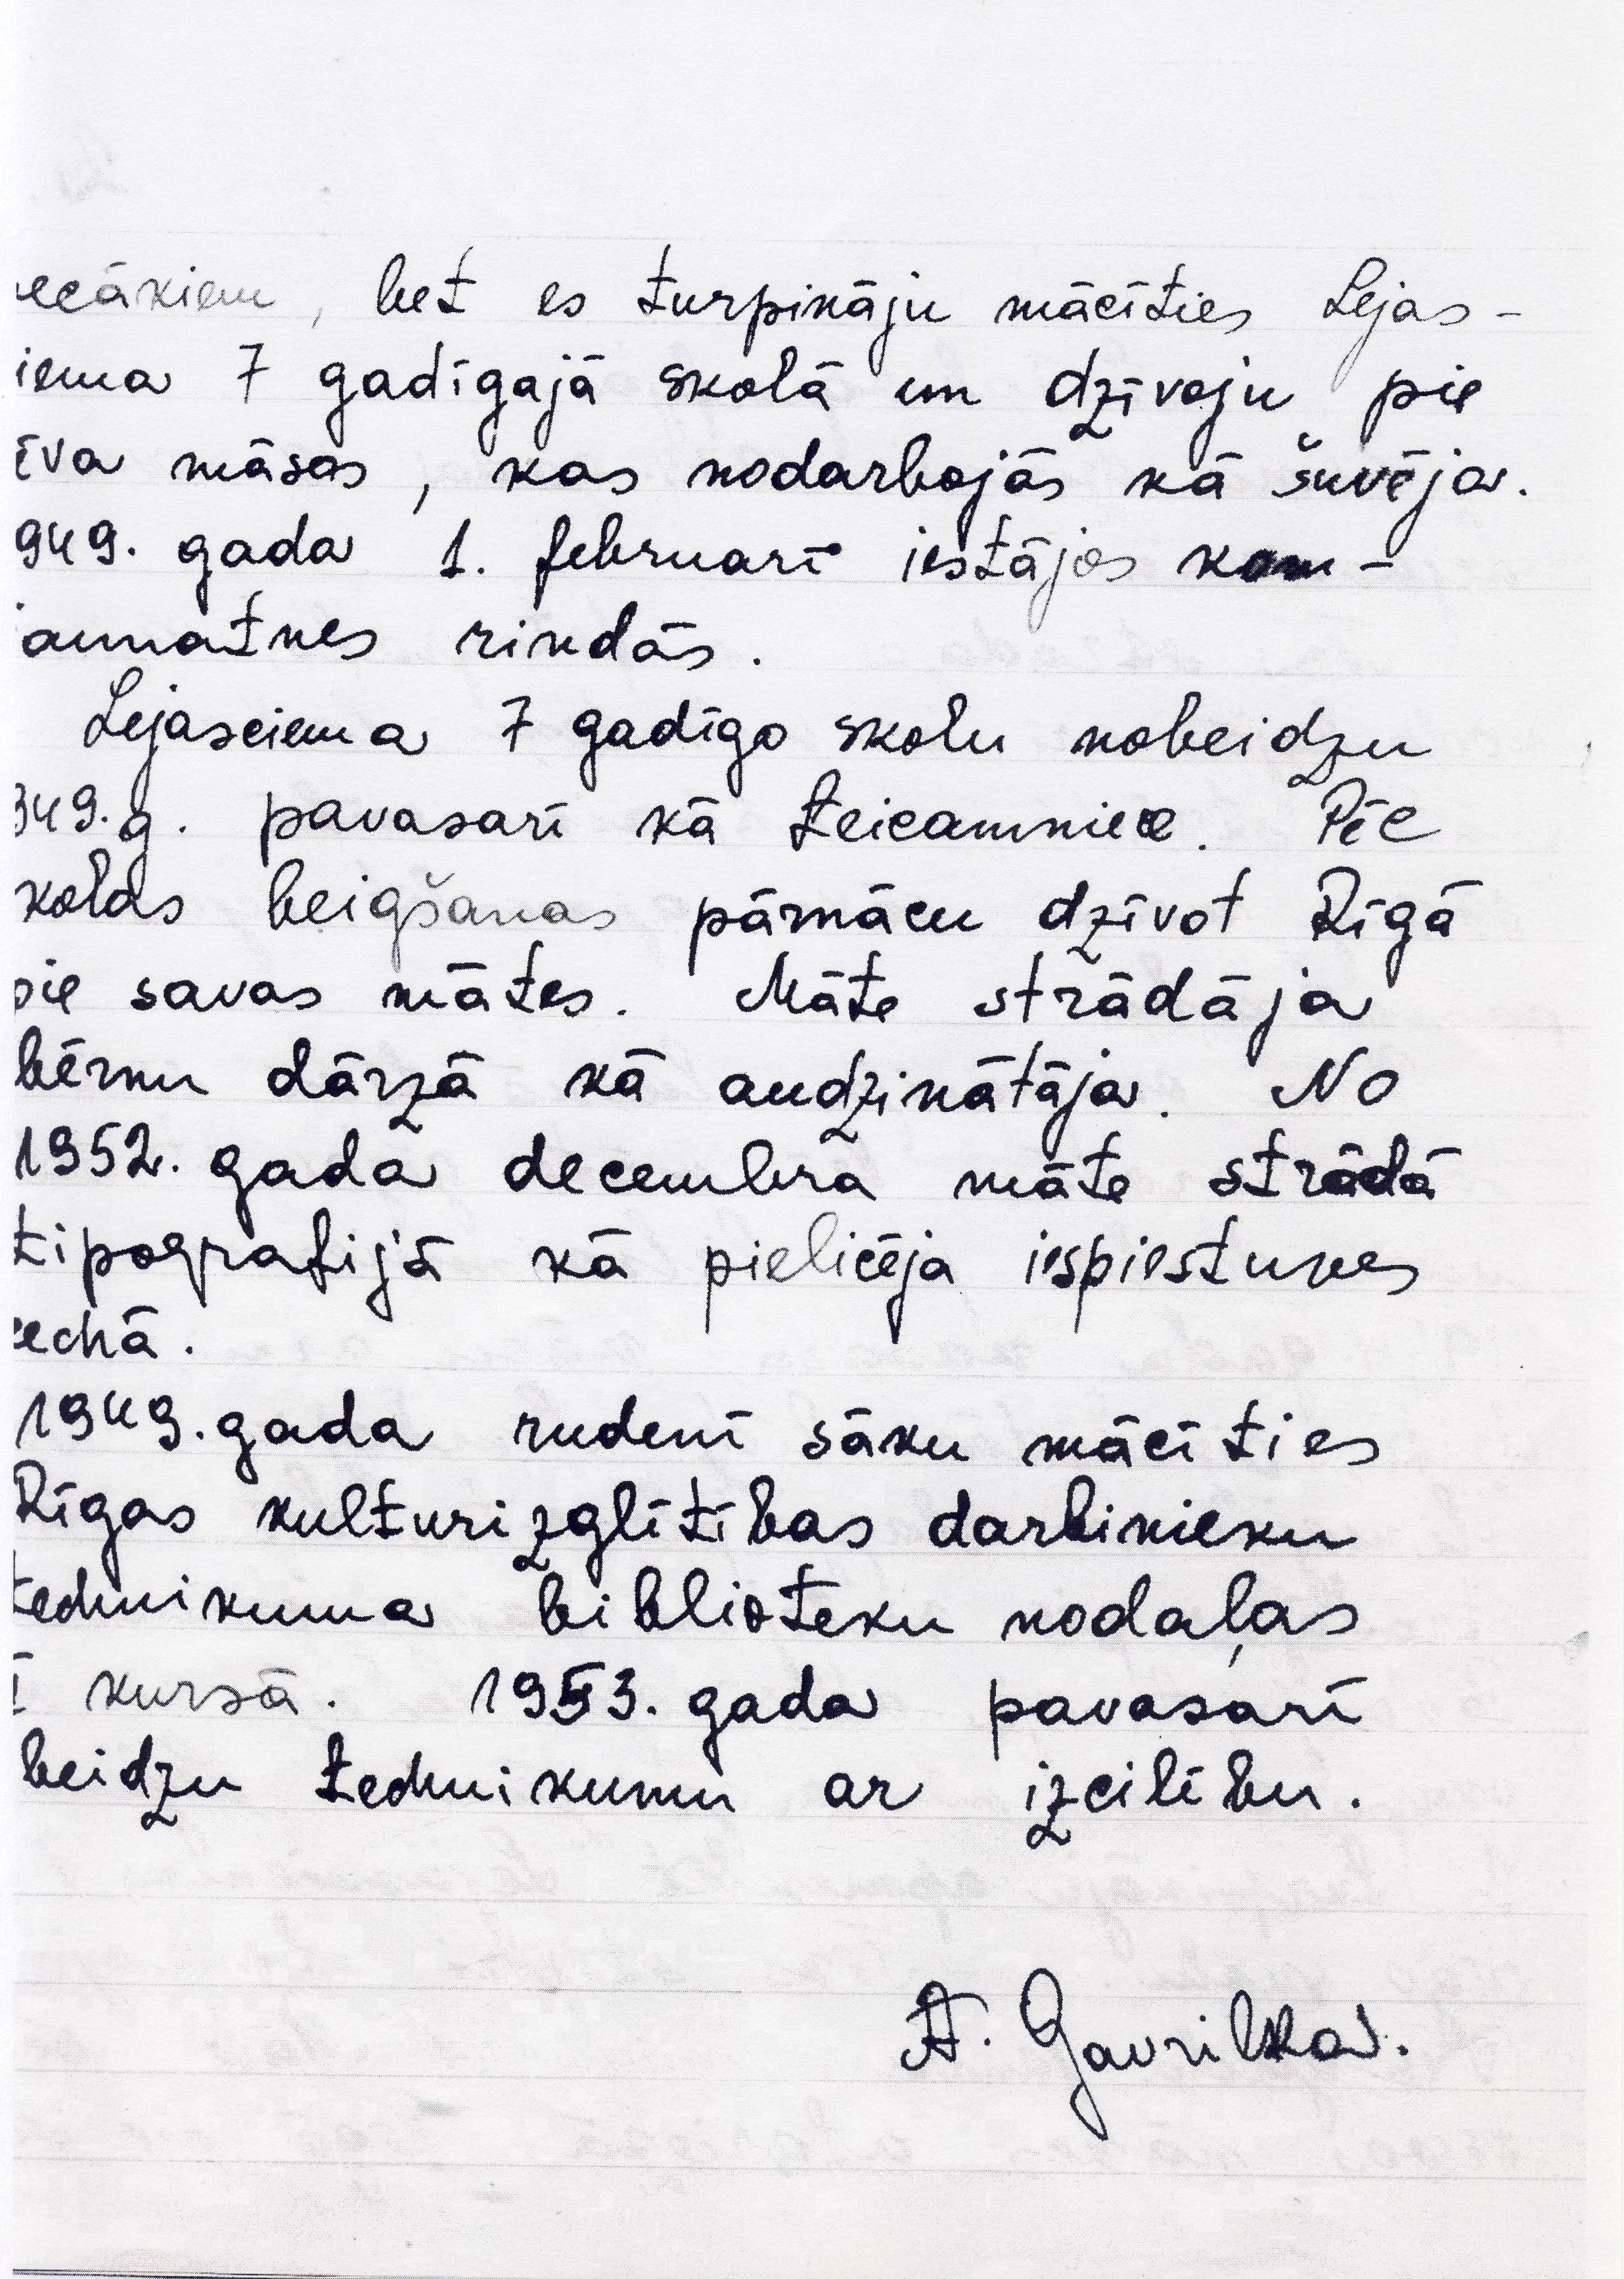 ecākiem, bet es turpināju mācīties Lejas-
iema 7 gadīgajā skolā un dzīvoju pie
īva māsas, kas nodarbojās kā šuvēja.
949. gada 1. februarī iestājos kom-
jaunatnes rindās.
Lejasciema 7 gadīgo skolu nobeidzu
949.g. pavasarī kā teicamniece. Pēc
kolas beigšanas pārnācu dzīvot Rīgā
pie savas mātes. Māte strādāja
bērnu dārzā kā audzinātāja. No
1952. gada decembra māte strādā
tipografijā kā pielicēja iespiestuves
cechā.
1949. gada rudenī sāku mācīties
Rīgas kulturizglītības darbinieku
technikuma biblioteku nodaļas
I kursā. 1953. gada pavasarī
beidzu technikumu ar izcilību.
A. Gavrilka.